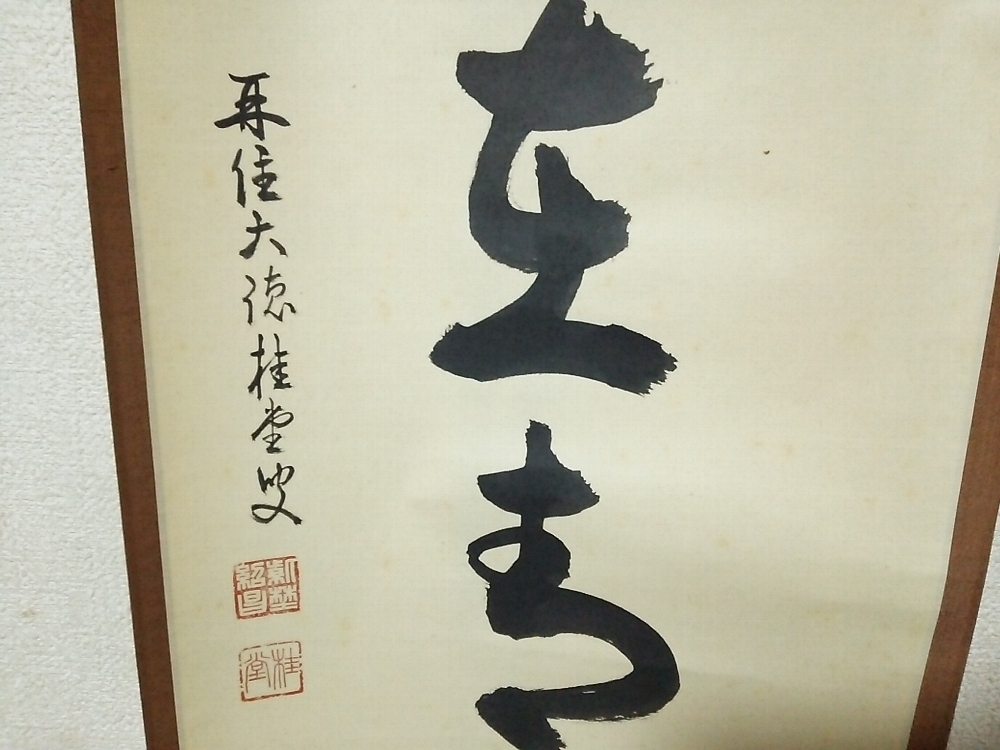 在青
再住大徳桂堂叟
桂堂